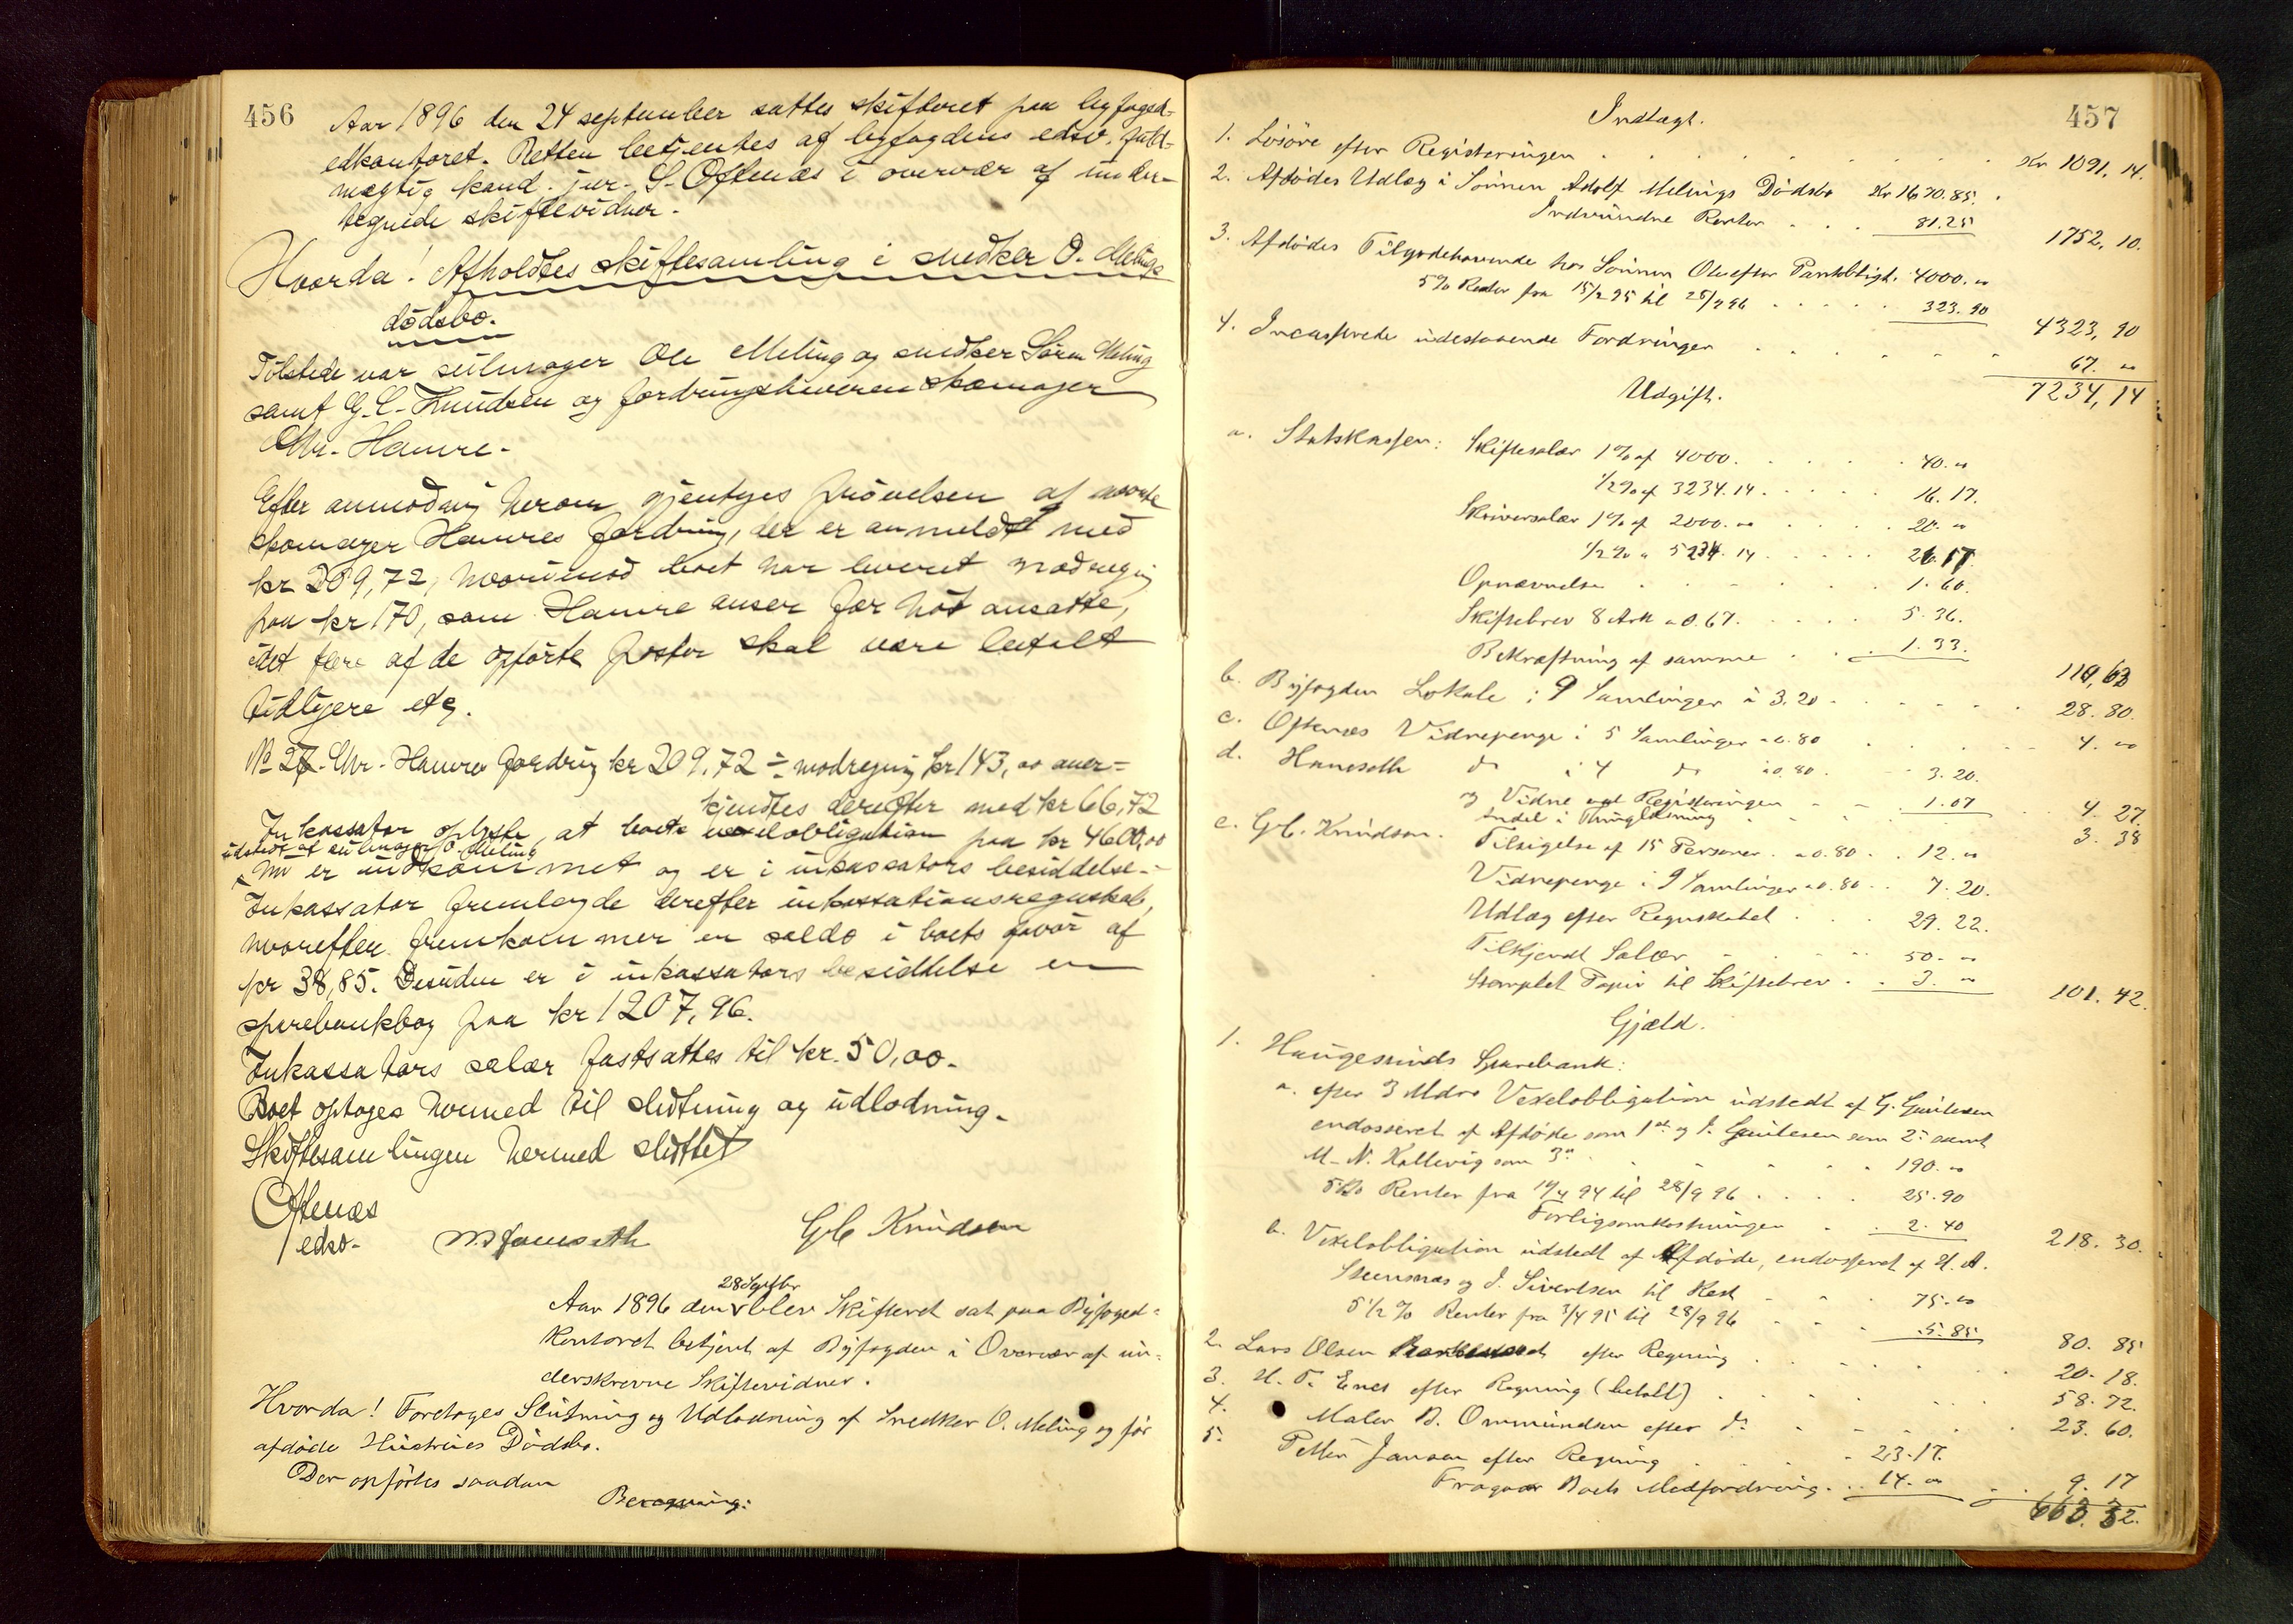 456
Aar 1896 den 24 september sattes skifteret paa byfoged-
edkontoret. Retten betjentes af byfogdens edsv. fuld-
mægtig kand. jur. S. Oftenæs i overvær af under-
tegnede skiftevidner.
Hvorda! Afholdtes skiftesamling i snedker O. Melings
dødsbo.
Tilstede var seilmager Ole Meling og snedker Søren Meling
samt G. C. Knudsen og fordringshaveren skomager
Chr. Hamre.
Efter anmodning herom gjentoges prøvelsen af
skomager Hamres fordring, der er anmeldt med
kr 209,72, hvorimod boet har leveret modregning
paa kr 170, som Hamre anser for høit ansatte,
idet flere af de opførte poster skal være betalt
tidligere etc.
No 27. Chr. Hamres fordring kr 209,72 ÷ modregning kr 143,00 aner-
kjendtes derefter med kr 66,72
Inkassator oplyste, at boets obligation paa kr 4600,00
udstedt af seilmager O. Meling
nu er indkommet og er i inkassators besiddelse.
Inkassator fremlagde derefter inkassationsregnskab,
hvorefter fremkommer en saldo i boets favør af
kr 38,85. Desuden er i inkassators besiddelse en
sparebankbog paa kr 1207,96.
Inkassators salær fastsattes til kr. 50,00.
Boet optoges hermed til slutning og udlodning.
Skiftesamlingen hermed sluttet
Oftenæs
edsv.
G. C. Knudsen
28 Septbr
Aar 1896 den blev Skifteret sat paa Byfoged=
kontoret betjent af Byfogden i Overvær af un=
derskrevne Skiftevidner.
Hvorda! Foretoges Slutning og Udlodning af Snedker O. Meling og før
afdøde Hustrues Dødsbo.
Der opførtes saadan
Beregning:
457
Indtægt.
1. Løsøre efter Registeringen . . . Kr 1091. 14.
2. Afdødes Udlæg i Sønnen Adolf Melings Dødsbo Kr 1670.85.
Indvundne Renter . . . 81.25 1752, 10.
3. Afdødes Tilgodehavende hos Sønnen Ole efter Pantobligt. 4000. "
5% Renter fra 15/2 95 til 28/9 96 . . . 323. 90 4323, 90
4. Incasserede udestaaende Fordringer . . . 67. "
7234, 14
Udgift.
a. Statskassen: Skiftesalær 1% af 4000. . . 40. "
1/2% af 3234.14 . . . 16. 17.
Skriversalær 1% af 2000. " . . . 20. "
1/2% " 5234. 14 . . . 26. 17.
Opnævnelse . . . 1. 60.
Skiftebrev 8 Ark a 0.67. . . . 5. 36.
Bekræftning af samme . . . 1. 33. 110, 63
b. Byfogden Lokale i 9 Samlinger à 3.20 . . . 28. 80.
c. Oftenæs Vidnepenge i 5 Samlinger a 0.80 . . . 4. "
d. Haneseth do i 4 do a 0.80. . . 3. 20.
og Vidne ved Registeringen . . . 1. 07 4. 27.
Andel i Thinglæsning . . . 3. 38
e. G. C. Knudsen. Tilsigelse af 15 Personer. a 0.80 . . 12. "
Vidnepenge i 9 Samlinger a 0.80 . . 7. 20.
Udlæg efter Regnskabet . . . 29. 22.
Tilkjendt Salær . . . 50. "
Stemplet Papir til Skiftebrev . . 3. " 101. 42.
Gjæld.
1. Haugesunds Sparebank:
a. efter 3 Mdrs Vexelobligation udstedt af G. Gautesen
endosseret af Afdøde som 1st og J. Gautesen som 2n samt
M. N. Hallevig som 3n . . . 190. "
Renter fra 14/4 94 til 28/9 96 . . . 25. 90
Forligsomkostninger . . 2. 40 218. 30.
b. Vexelobligation udstedt af Afdøde, endosseret af H. A.
Steensnæs og J. Sivertsen til Rest . . . 75. "
5 1/2 % Renter fra 3/4 95 til 28/9 96 . . . 5. 85 80. 85
2. Lars Olsen efter Regning . . . 20. 18.
3. H. T. Enes efter Regning (betalt) . . . 58. 72.
4. Maler B. Ommundsen efter do . . . 23. 60.
5. Petter Jansen efter Regning . . . 23. 17.
Fragaar Boets Modfordring. . . 14. " 9. 17